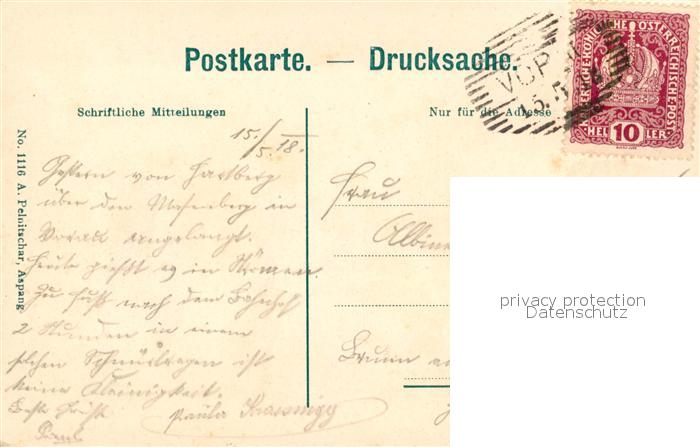 Postkarte. — Drucksache.
KAISERLICHE KÖNIGLICHE ÖSTERREICHISCHE POST
HEL 10 LER
VOR
15.5
Schriftliche Mitteilungen
Nur für die Adresse
15./5. 18.
Gestern von Hartberg
über den Masenberg in
Vorau angelangt.
Heute gießt es in Strömen.
Zu Fuß nach dem Bahnhof
2 Stunden in einem
solchen Schnürlregen ist
keine Kleinigkeit.
Beste Grüße
Paula
Frau
Albine
Brunn
No. 1116 A. Pelnitschar, Aspang
privacy protection
Datenschutz